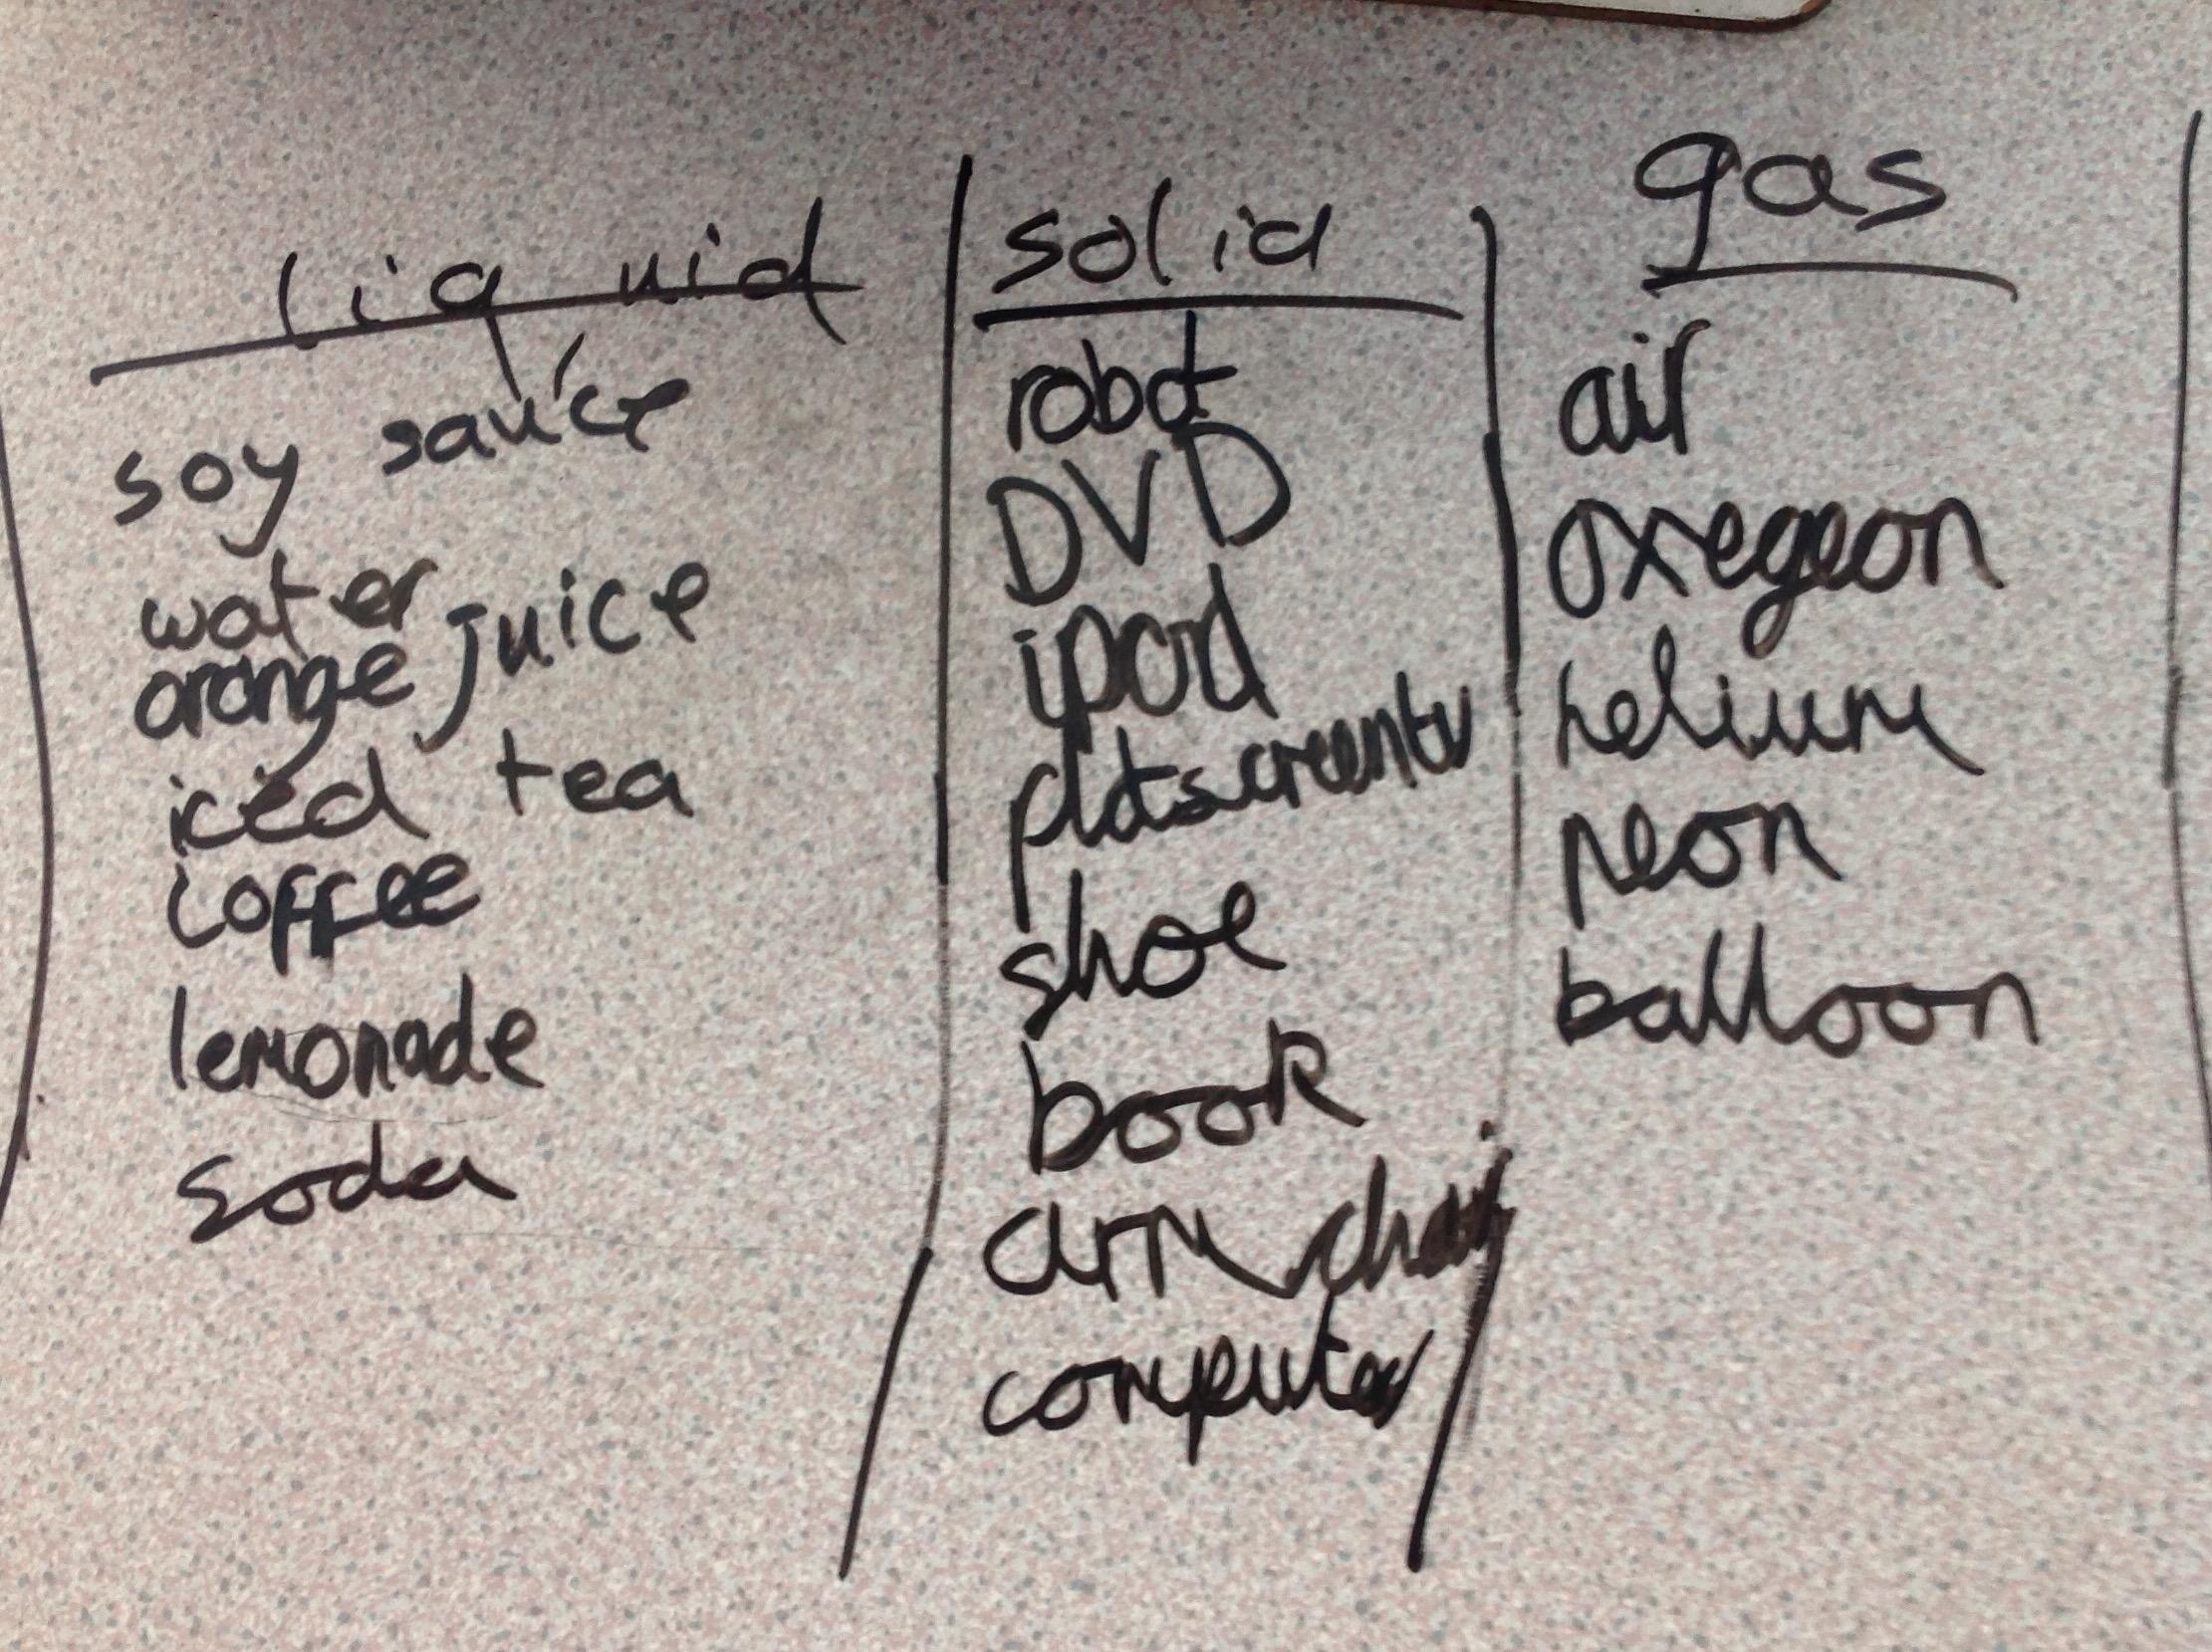 liquid
soy sauce
water
orange juice
iced tea
coffee
lemonade
soda
solid
robot
DVD
ipod
platscreentv
shoe
book
arm chair
computer
gas
air
oxegeon
helium
neon
balloon